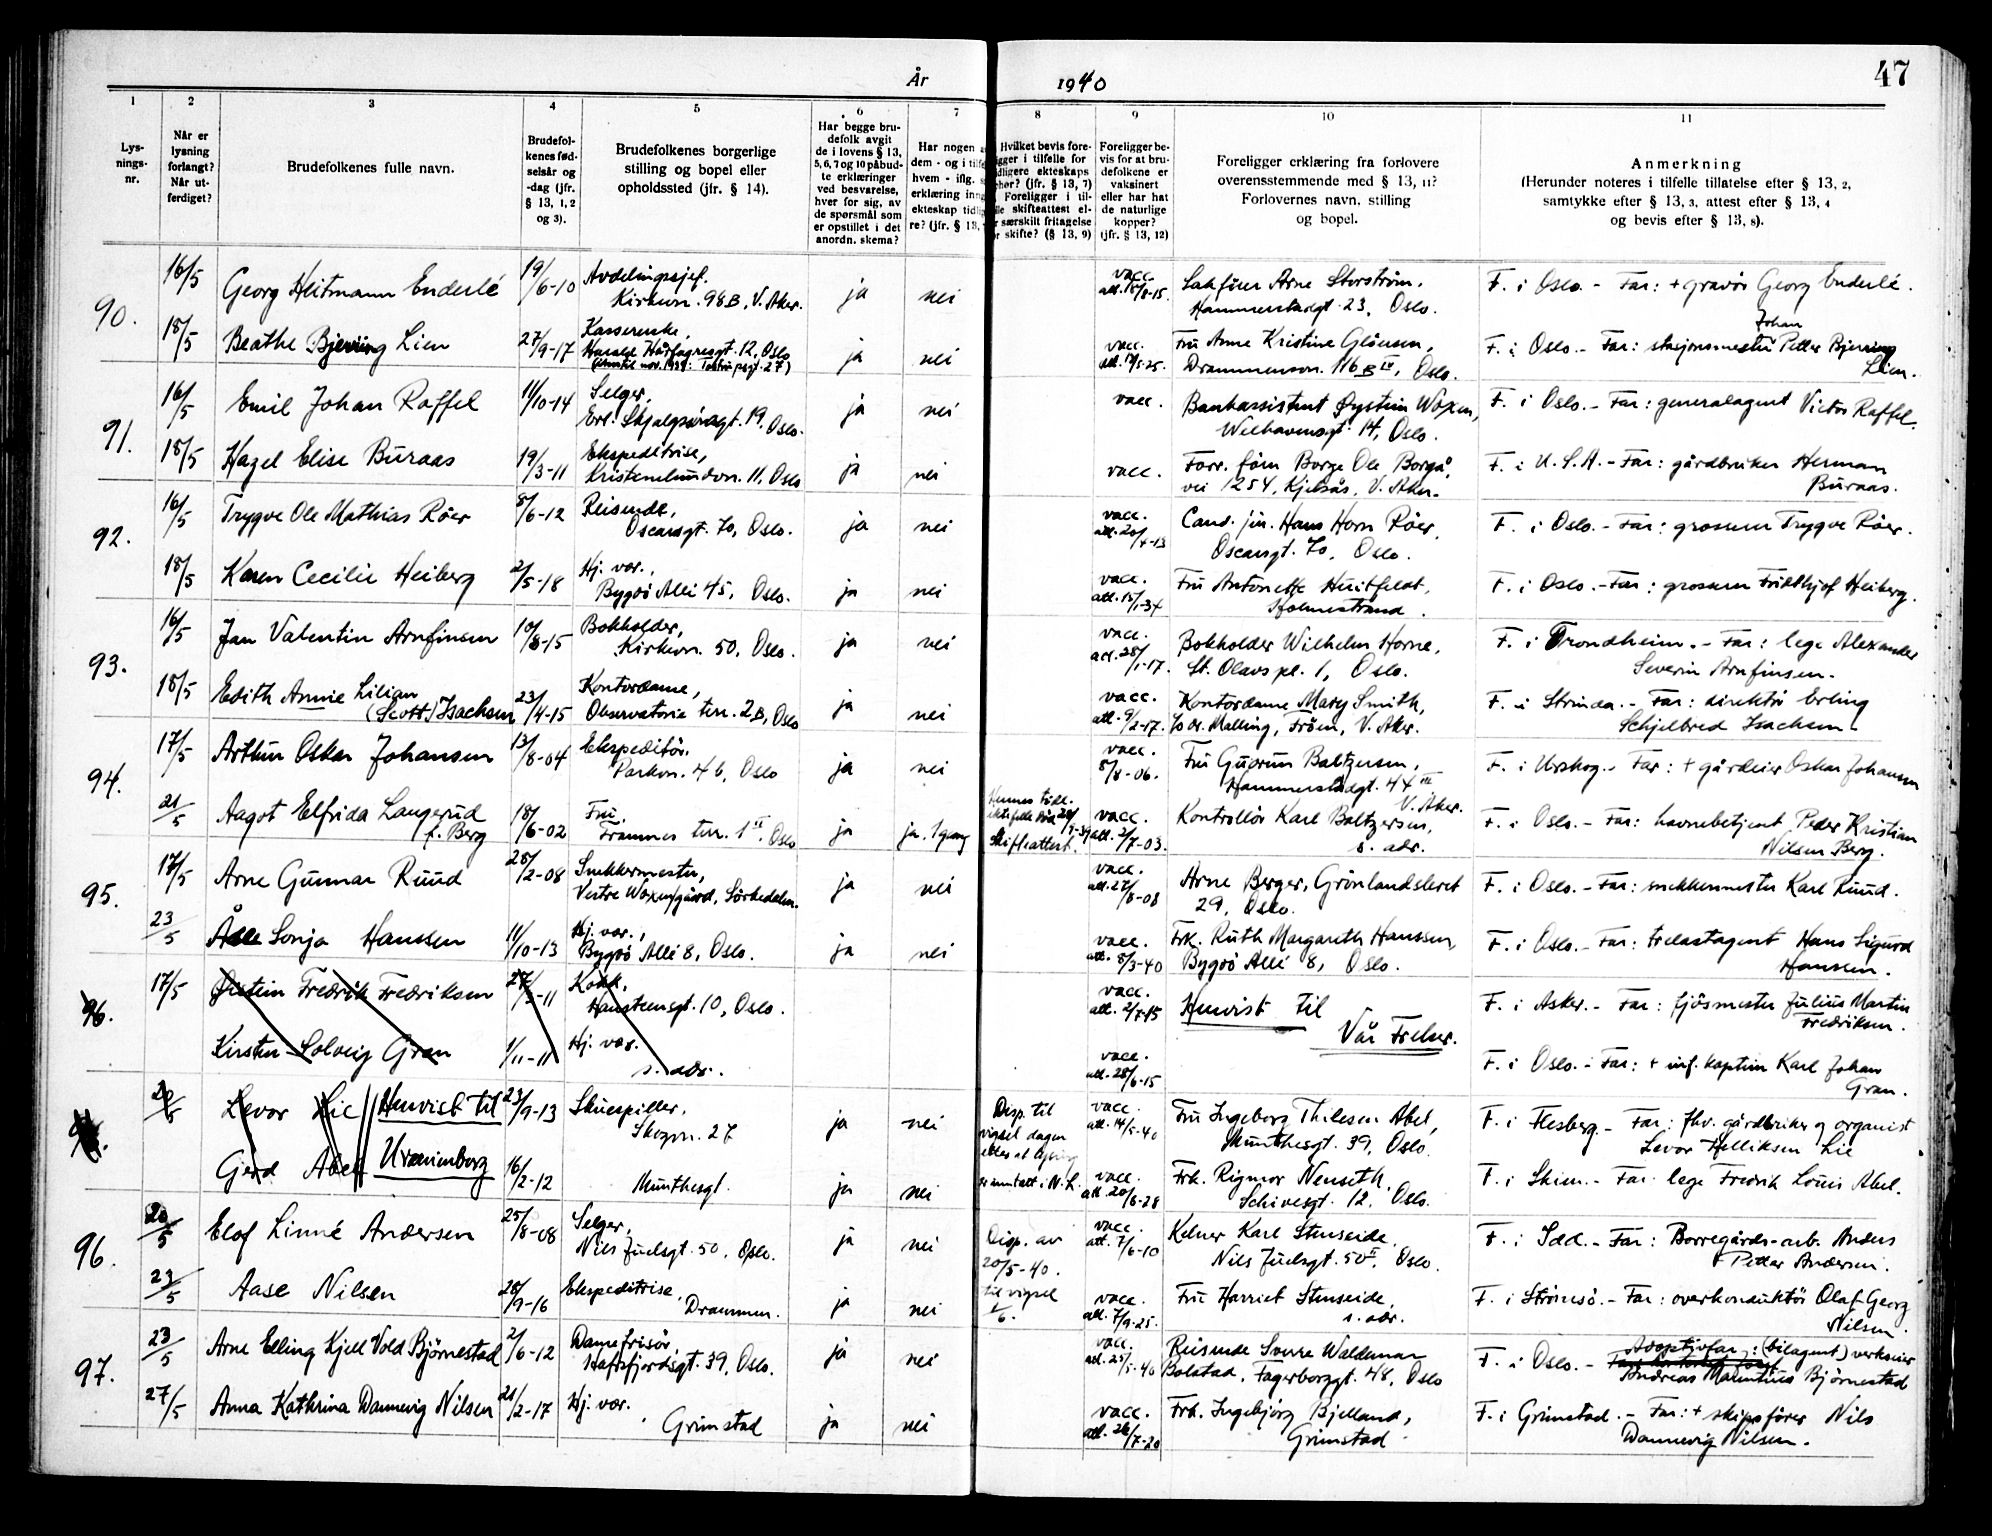 År 1940
47
1 2 3 4 5 6 7 8 9 10 11
Lys-
nings-
nr.
Når er
lysning
forlangt?
Når ut-
ferdiget?
Brudefolkenes fulle navn.
Brudefol-
kenes fød-
selsår og
-dag (jfr.
§ 13, 1, 2
og 3).
Brudefolkenes borgerlige
stilling og bopel eller
opholdssted (jfr. § 14).
Har begge bru-
defolk avgit
de i lovens § 13,
5, 6, 7 og 10 påbud-
te erklæringer
ved besvarelse,
hver for sig, av
de spørsmål som
er opstillet i det
anordn. skema?
Har nogen
dem - og i tilfe
hvem - iflg.
erklæring inng
ekteskap tidlig
re? (jfr. § 13,
Hvilket bevis fore-
ligger i tilfelle for
idligere ekteskaps
phør? (jfr. § 13, 7)
Foreligger i til-
lle skifteattest el-
r særskilt fritagelse
r skifte? (§ 13, 9)
Foreligger be-
vis for at bru-
defolkene er
vaksinert
eller har hat
de naturlige
kopper?
(jfr. § 13, 12)
Foreligger erklæring fra forlovere
overensstemmende med § 13, 11?
Forlovernes navn, stilling
og bopel.
Anmerkning
(Herunder noteres i tilfelle tillatelse efter § 13, 2,
samtykke efter § 13, 3, attest efter § 13, 4
og bevis efter § 13, 8).
90.
16/5 Georg Heitmann Enderlé 19/6-10 Avdelingssjef. Kirkevn. 98B, V. Aker. ja nei vacc. Sakfører Arne Storstrøm, Hammerstadgt. 23, Oslo. F. i Oslo. - Far: + gravør Georg Enderlé.
18/5 Beathe Bjerring Lien 27/9-17 Kassererske, Harald Hårfagresgt. 12, Oslo ja nei vacc. Fru Anne Kristine Drammensvn. 116 B IV, Oslo. F. i Oslo. - Far: stasjonsmester Johan Petter Bjerring Lien.
91.
16/5 Emil Johan Raffel 11/10-14 Selger, Erl. Skjalgssønsgt. 19, Oslo. ja nei vacc. Bankassistent Øystein Woxen, Welhavensgt. 14, Oslo. F. i Oslo. - Far: generalagent Victor Raffel.
18/5 Hazel Elise Buraas 19/3-11 Ekspeditrise, Kristenelundvn. 11, Oslo ja nei vacc. Forr. fører Borge Ole Borgå, vei 1254, Kjelsås, V. Aker. F. i U.S.A. - Far: gårdbruker Herman Buraas.
92.
16/5 Trygve Ole Mathias Röer 8/6-12 Reisende, Oscarsgt. 70, Oslo. ja nei vacc. att. 20/4-13 Cand. jur. Hans Horn Röer, Oscarsgt. 70, Oslo. F. i Oslo. - Far: grosserer Trygve Röer.
18/5 Karen Cecilie Heiberg 2/5-18 Hj. vær., Bygdö Allé 45, Oslo. ja nei vacc. att. 15/1-34 Fru Antonette Huitfeldt, Holmestrand. F. i Oslo. - Far: grosserer Fridthjof Heiberg.
93.
16/5 Jan Valentin Arnfinsen 10/8-15 Bokholder, Kirkevn. 50, Oslo. ja nei vacc. att. 28/1-17. Bokholder Wilhelm Horne, St. Olavs pl. 1, Oslo. F. i Trondheim. - Far: lege Alexander Severin Arnfinsen.
18/5 Edith Annie Lilian (Scott) Isachsen 23/4-15 Kontordame, Observatorie terr. 2B, Oslo ja nei vacc. att. 9/2-17. Kontordame Mary Smith, Malling, Frøen, V. Aker. F. i Strinda. - Far: direktør Erling Schjelbred Isachsen.
94.
17/5 Arthur Oskar Johansen 13/8-04 Ekspeditør. Parkvn. 46, Oslo ja nei vacc. 8/8-06. Fru Gudrun Baltzersen, Hammerstadgt. 44 III V. Aker. F. i Urskog. - Far: + gårdeier Oskar Johansen
21/5 Aagot Elfrida Langerud f. Berg 18/6-02 Fru, Framnes terr. 1 II, Oslo ja ja. 1 gang Skifteattest. vacc. att. 2/7-03. Kontrollør Karl Baltzersen, s. adr. F. i Oslo. - Far: havnebetjent Peder Kristian Nilsen Berg.
95.
17/5 Arne Gunnar Ruud 28/2-08 Snekkermester, Vestre Woxen/gård, Sörkedalen. ja nei vacc. att. 27/8-08 Arne Berger, Grönlandsleret 29, Oslo. F. i Oslo. - Far: snekkermester Karl Ruud.
23/5 Åse Sonja Hanssen 11/10-13 Hj. vær., Bygdö Allé 8, Oslo. ja nei vacc. att. 8/3-40 Frk. Ruth Margareth Hanssen, Bygdö Allé 8, Oslo. F. i Oslo. - Far: trelastagent Hans Sigurd Hanssen.
96.
17/5 Øistein Fredrik Fredriksen 27/3-11 Kokk, Hansteensgt. 10, Oslo. vacc. att. 2/7-15 Henvist til Vår Frelser. F. i Asker. - Far: fjösmester Julius Martin Fredriksen.
Kirsten Solveig Gran 1/11-11 Hj. vær. s. adr. vacc. att. 28/6-15 F. i Oslo. - Far: + inf. kaptein Karl Johan Gran.
20/5 Levor Lie Henvist til 23/9-13 Skuespiller. Skogvn. 27 ja nei Disp. til vigsel dagen vacc. att. 14/5-40 Fru Ingeborg Thilesen Abel, Munthesgt. 39, Oslo. F. i Flesberg. - Far: fhv. gårdbruker og organist Levor Helliksen Lie
Gerd Abel Uranienborg 16/2-12 Munthesgt. ja nei vacc. att. 20/8-28 Frk. Rigmor Nenseth. Schivesgt. 12, Oslo. F. i Skien. - Far: lege Fredrik Louis Abel.
96.
20/5 Elof Linné Andersen 25/8-08 Selger, Nils Juelsgt. 50, Oslo. ja nei Disp. av 20/5-40. vacc. att. 7/6-10 Kelner Karl Stenseide, Nils Juelsgt. 50 II, Oslo. F. i Idd. - Far: Borregårds-arb. Anders Petter Andersen.
23/5 Aase Nilsen 28/9-16 Ekspeditrise, Drammen. ja nei til vigsel 1/6. vacc. att. 7/9-25. Fru Harriet Stenseide, s. adr. F. i Strömsö. - Far: overkonduktör Olaf Georg Nilsen.
97.
23/5 Arne Elling Kjell Vold Björnestad 2/6-12 Damefrisør, Hafrsfjordsgt. 39, Oslo. ja nei vacc. att. 25/5-40 Reisende Sverre Waldemar Bolstad, Fagerborggt. 48, Oslo F. i Oslo. - Adoptivfar: (bilagent) verkseier Andreas Martinius Björnestad
27/5 Anna Kathrina Dannevig Nilsen 21/2-17 Hj. vær. Grimstad ja nei vacc. att. 26/7-20 Frk. Ingebjörg Bjelland, Grimstad. F. i Grimstad. - Far: + skipsförer Nils Dannevig Nilsen.